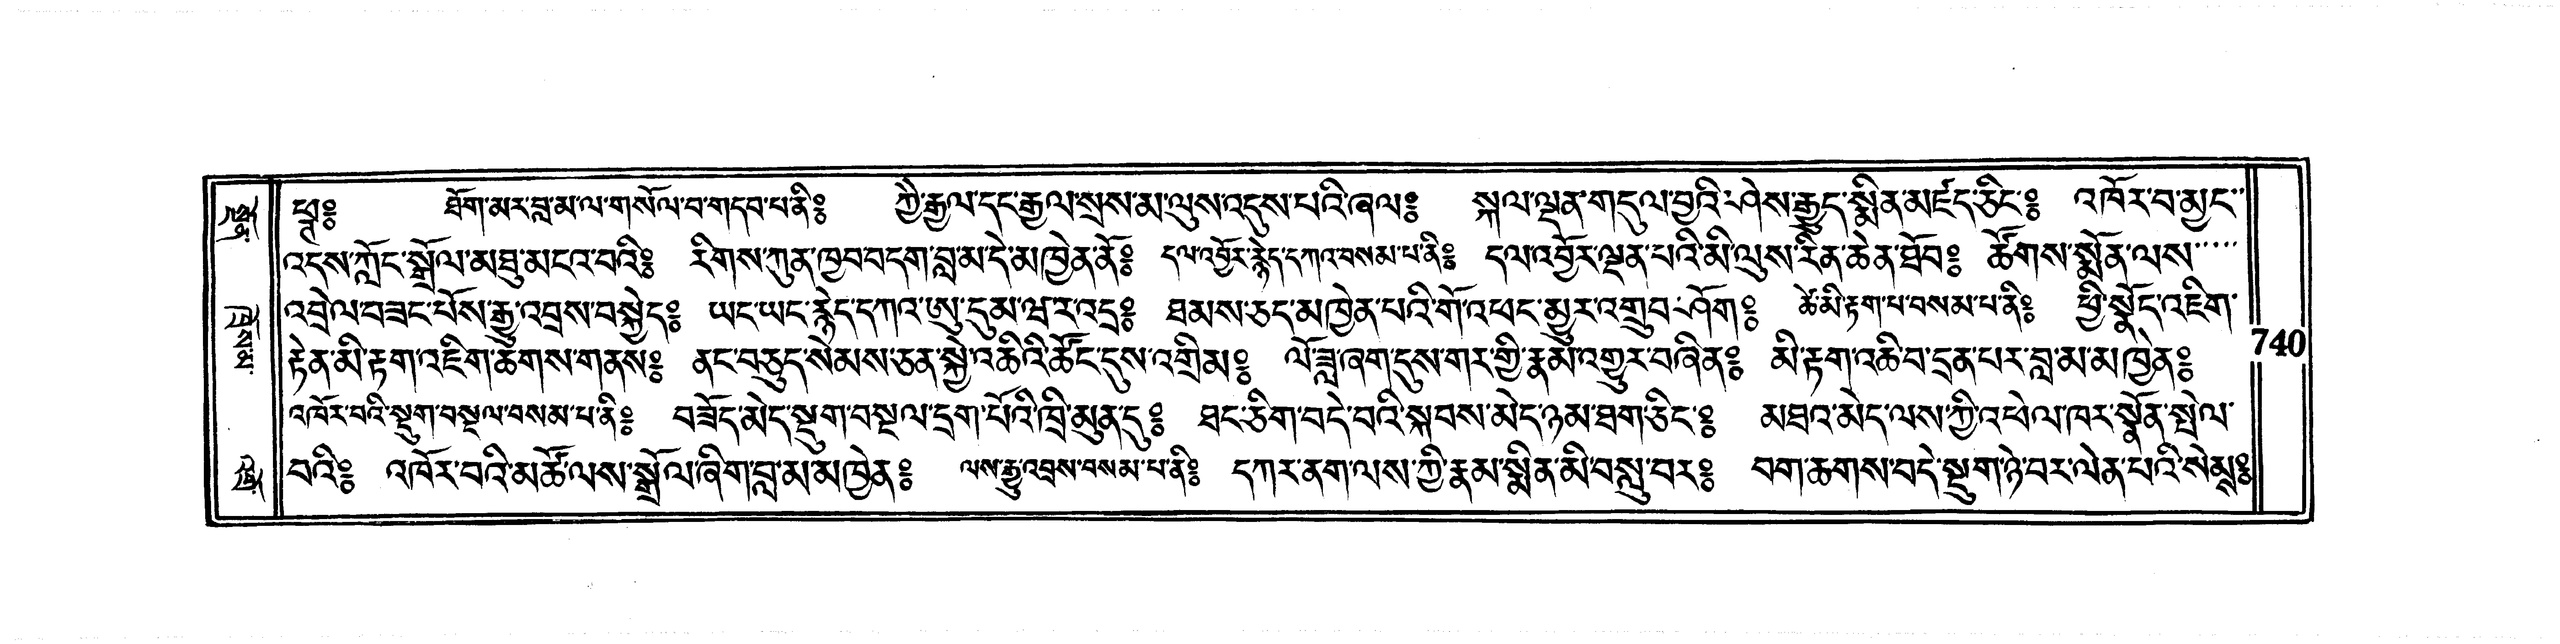 བླ༔ ཐོག་མར་བླ་མ་ལ་གསོལ་བ་གདབ་པ་ནི༔ ཀྱེ་རྒྱལ་དང་རྒྱལ་སྲས་མ་ལུས་འདུས་པའི་ཞལ༔ སྐལ་ལྡན་གདུལ་བྱའི་ཤེས་རྒྱུད་སྨིན་མཛད་ཅིང་༔ འཁོར་བ་མྱང་
འདས་ཀློང་སྒྲོལ་མཐུ་མངའ་བའི༔ རིགས་ཀུན་ཁྱབ་བདག་བླ་མ་དེ་མཁྱེན་ནོ༔ དལ་འབྱོར་རྙེད་དཀའ་བསམ་པ་ནི༔ དལ་འབྱོར་ལྡན་པའི་མི་ལུས་རིན་ཆེན་ཐོབ༔ ཚོགས་སྨོན་ལས
འབྲེལ་བཟང་པོས་རྒྱུ་འབྲས་བསྐྱེད༔ ཡང་ཡང་རྙེད་དཀའ་ཨུ་དུམ་ཝ་ར་འདྲ༔ ཐམས་ཅད་མཁྱེན་པའི་གོ་འཕང་མྱུར་འགྲུབ་ཤོག༔ ཚེ་མི་རྟག་པ་བསམ་པ་ནི༔ ཕྱི་སྣོད་འཇིག་
རྟེན་མི་རྟག་འཇིག་ཆགས་གནས༔ ནང་བཅུད་སེམས་ཅན་སྐྱེ་འཆིའི་ཚོང་དུས་འགྲིམ༔ ལོ་ཟླ་ཞག་དུས་གར་གྱི་རྣམ་འགྱུར་བཞིན༔ མི་རྟག་འཆི་བ་དྲན་པར་བླ་མ་མཁྱེན༔
འཁོར་བའི་སྡུག་བསྔལ་བསམ་པ་ནི༔ བཟོད་མེད་སྡུག་བསྔལ་དྲག་པོའི་ཁྲི་མུན་དུ༔ ཐང་ཅིག་བདེ་བའི་སྐབས་མེད་ཉམ་ཐག་ཅིང་༔ མཐའ་མེད་ལས་ཀྱི་འཕེལ་ཁར་སྣོན་སྤེལ་
བའི༔ འཁོར་བའི་མཚོ་ལས་སྒྲོལ་ཞིག་བླ་མ་མཁྱེན༔ ལས་རྒྱུ་འབྲས་བསམ་པ་ནི༔ དཀར་ནག་ལས་ཀྱི་རྣམ་སྨིན་མི་བསླུ་བར༔ བག་ཆགས་བདེ་སྡུག་ཉེ་བར་ལེན་པའི་སེམས༔
740